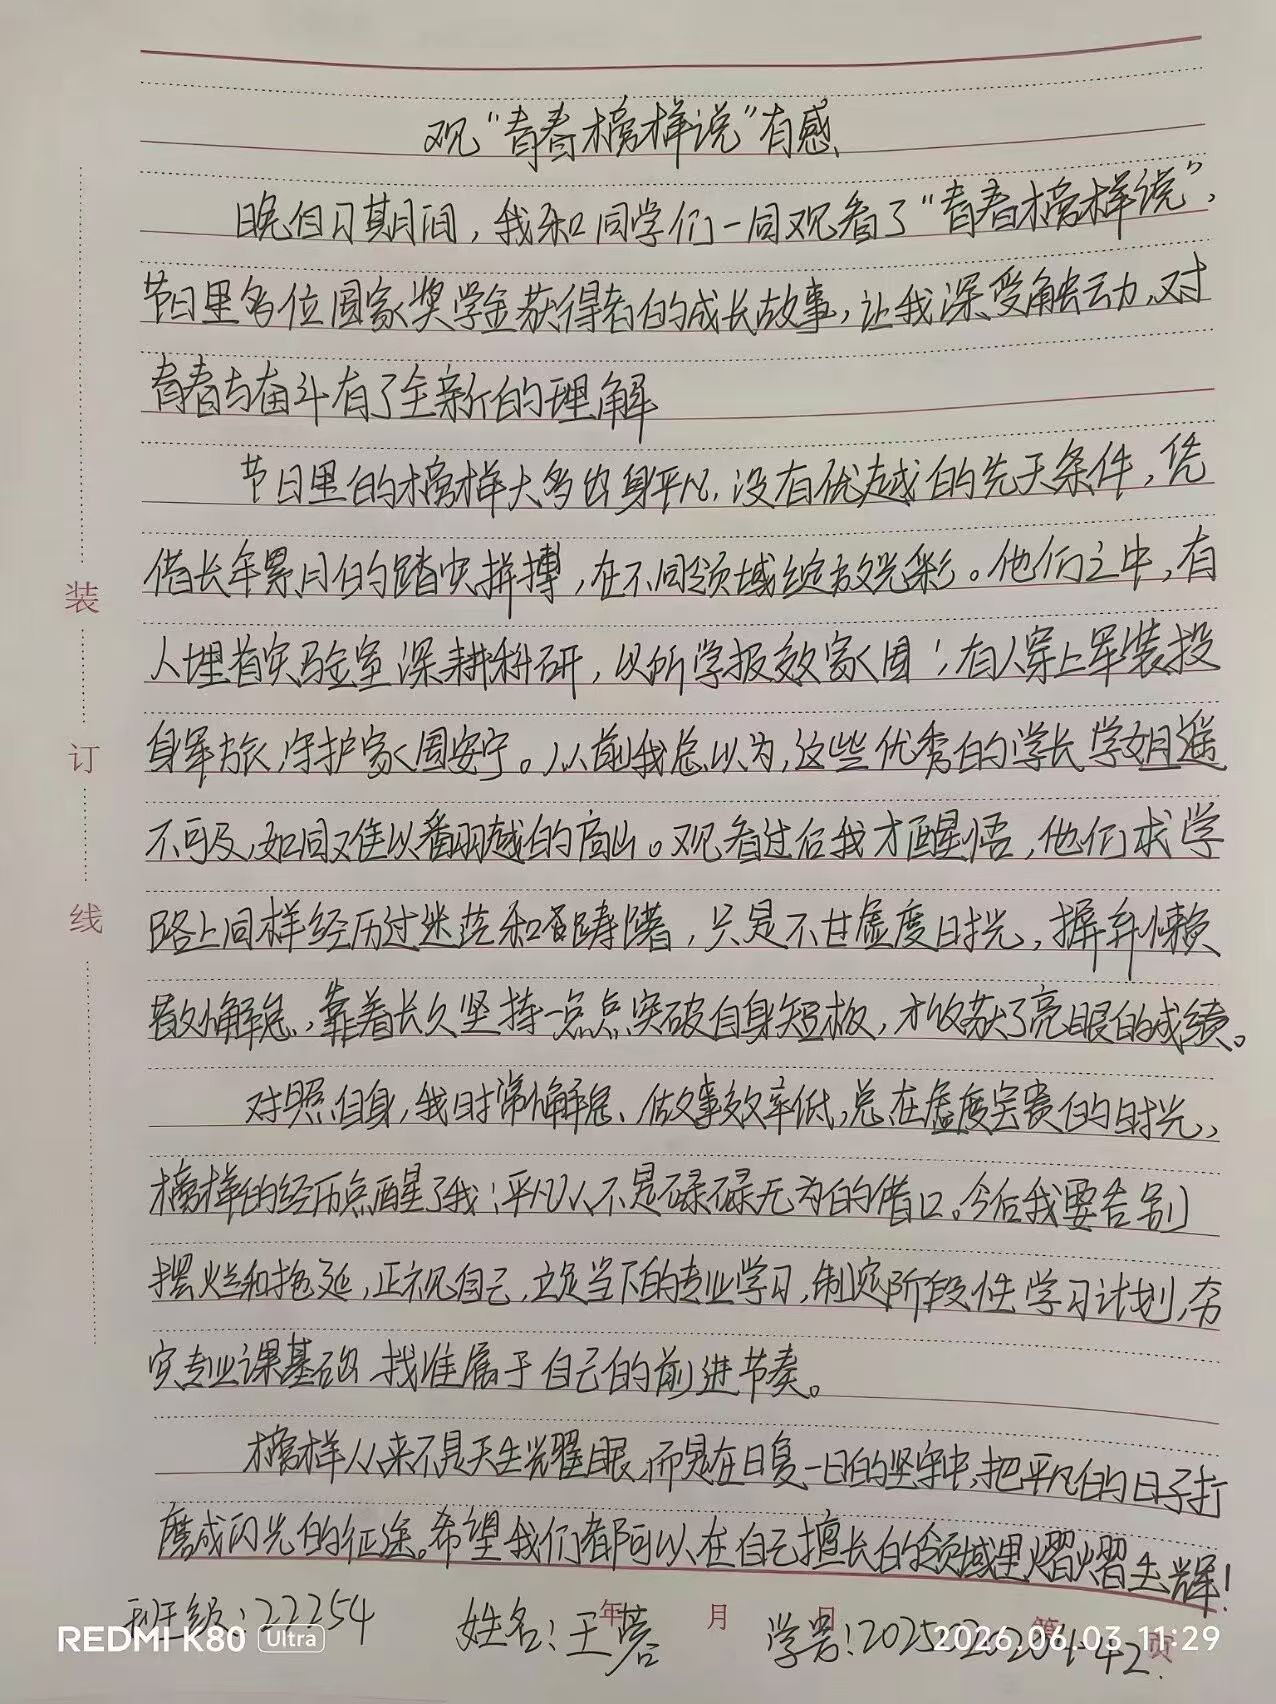 观“青春榜样说”有感
晚自习期间，我和同学们一同观看了“青春榜样说”，
节目里多位国家奖学金获得者的成长故事，让我深受触动，对
青春与奋斗有了全新的理解
节目里的榜样大多出身平凡，没有优越的先天条件，凭
借长年累月的踏实拼搏，在不同领域绽放光彩。他们之中，有
人埋首实验室深耕科研，以所学报效家国；有人穿上军装投
身军旅，守护家国安宁。以前我总以为，这些优秀的学长学姐遥
不可及，如同难以翻越的高山。观看过后我才醒悟，他们求学
路上同样经历过迷茫和踌躇，只是不甘虚度时光，摒弃懒
散懈怠，靠着长久坚持一点点突破自身短板，才收获了亮眼的成绩。
对照自身，我时常懈怠、做事效率低，总在虚度宝贵的时光，
榜样的经历点醒了我：平凡从不是碌碌无为的借口。今后我要告别
摆烂和拖延，正视自己，立足当下的专业学习，制定阶段性学习计划，夯
实专业课基础 找准属于自己的前进节奏。
榜样从来不是天生光耀眼，而是在日复一日的坚守中，把平凡的日子打
磨成闪光的征途。希望我们都可以在自己擅长的领域里熠熠生辉！
装
订
线
年 月 日 第 页
班级：22254 姓名：王蓉 学号：
REDMI K80 Ultra
2026.06.03 11:29